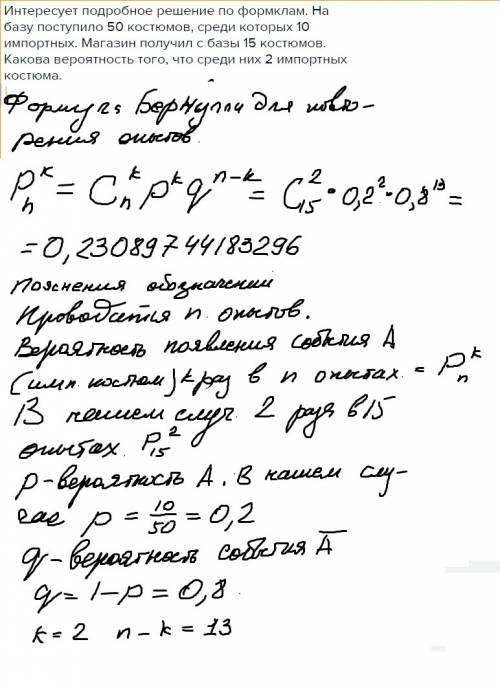 Интересует подробное решение по формклам. На
базу поступило 50 костюмов, среди которых 10
импортных. Магазин получил с базы 15 костюмов.
Какова вероятность того, что среди них 2 импортных
костюма.
Формула Бернулли для повто-
рения опытов
P_n^k = C_n^k p^k q^{n-k} = C_15^2 · 0,2^2 · 0,8^13 =
= 0,23089744183296
Пояснения обозначений
Проводится n опытов.
Вероятность появления события A
(имп. костюм) k раз в n опытах = P_n^k
В нашем случ. 2 раза в 15
опытах P_15^2
p - вероятность A. В нашем слу-
чае p = 10/50 = 0,2
q - вероятность события A̅
q = 1 - p = 0,8
k = 2 n - k = 13